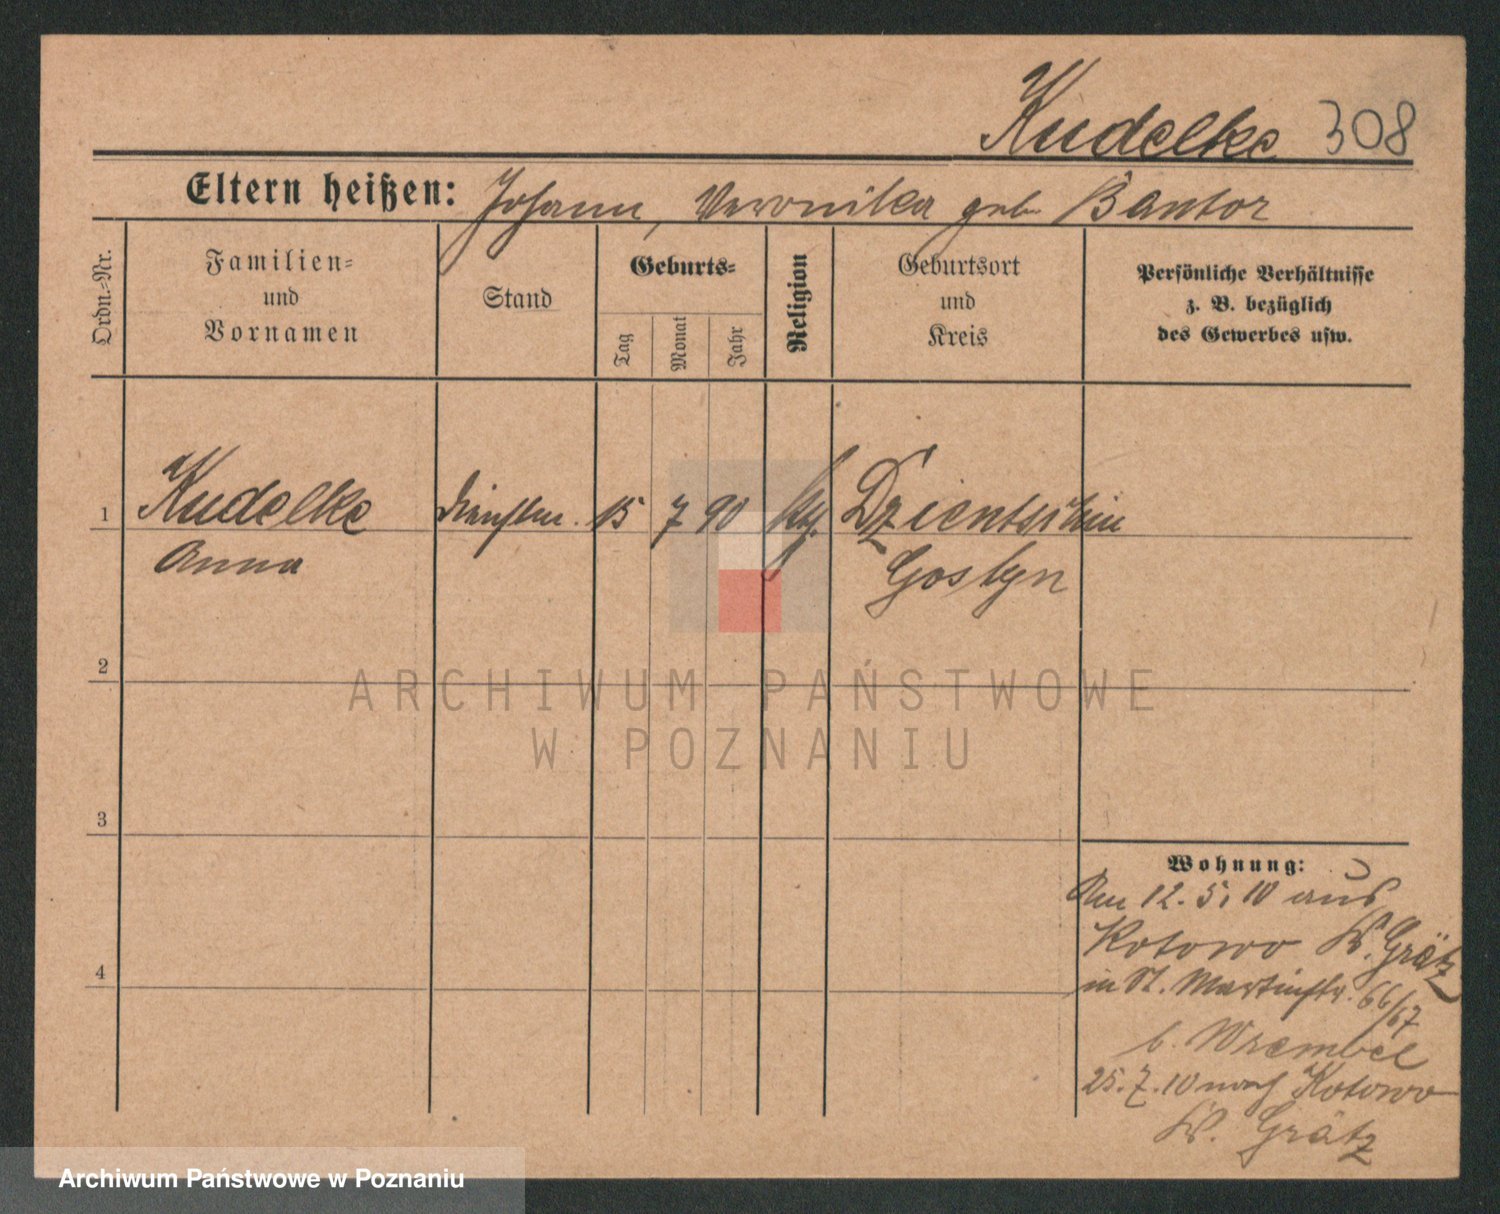 Kudelke 308
Eltern heißen: Johann, Veronika geb. Bantor
Ordn.-Nr.
Familien-
und
Vornamen
Stand
Geburts-
Tag
Monat
Jahr
Religion
Geburtsort
und
Kreis
Persönliche Verhältnisse
z. B. bezüglich
des Gewerbes usw.
1 Kudelke 15 7 90 kth.
Anna Gostyn
2
ARCHIWUM PAŃSTWOWE
W POZNANIU
3
Wohnung:
Am 12. 5. 10 aus
Kotowo K. Grätz
in St. Martinstr. 66/67
b. Wrembel
25. 7. 10 nach Kotowo
K. Grätz
4
Archiwum Państwowe w Poznaniu